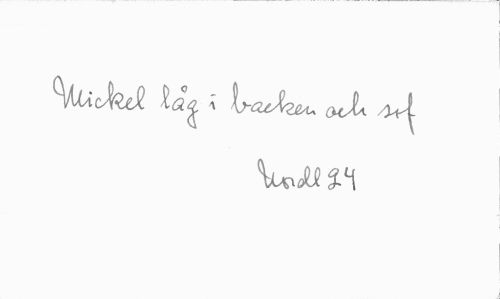 Mickel låg i backen och sof
Nordl 94